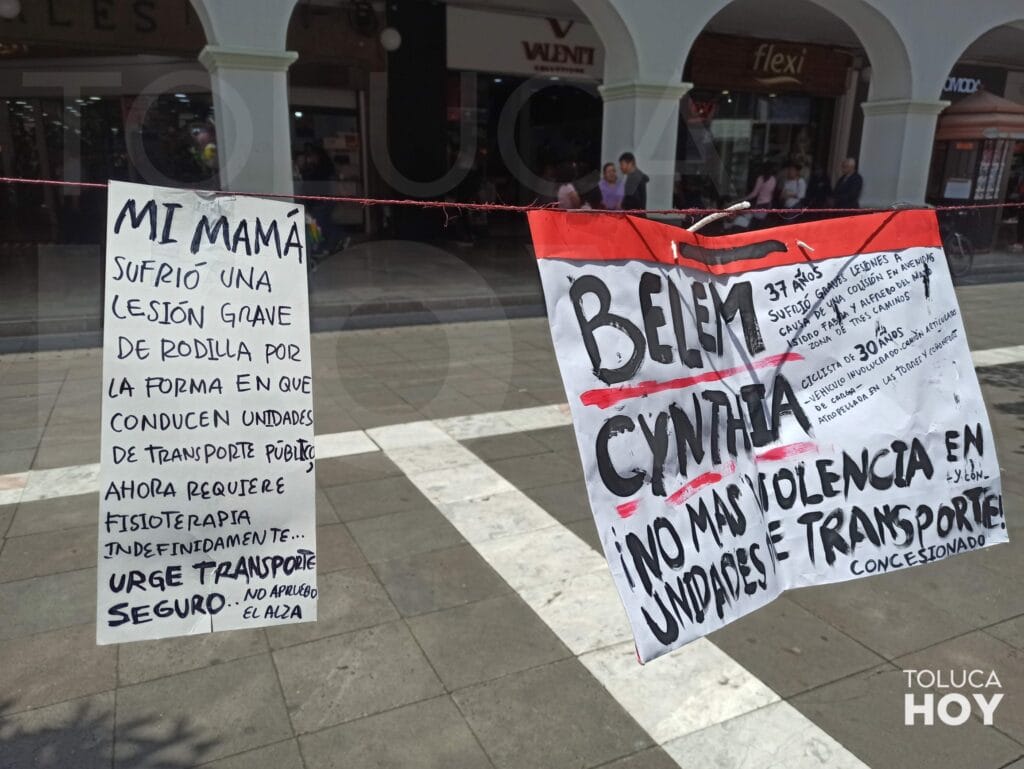 VALENTI
flexi
MODA
MI MAMÁ
SUFRIÓ UNA
LESIÓN GRAVE
DE RODILLA POR
LA FORMA EN QUE
CONDUCEN UNIDADES
DE TRANSPORTE PÚBLICO,
AHORA REQUIERE
FISIOTERAPIA
INDEFINIDAMENTE...
URGE TRANSPORTE
SEGURO... NO APRUEBO
EL ALZA
BELEM
37 AÑOS
SUFRIÓ GRAVES LESIONES A
CAUSA DE UNA COLISIÓN EN AVENIDAS
ISIDRO FABELA Y ALFREDO DEL MAZO
ZONA DE TRES CAMINOS
CYNTHIA
CICLISTA DE 30 AÑOS
-VEHICULO INVOLUCRADO: CAMIÓN ARTICULADO
DE CARGA-
ATROPELLADA EN LAS TORRES Y
¡NO MAS VIOLENCIA EN
-Y CON-
UNIDADES DE TRANSPORTE!
CONCESIONADO
TOLUCA
HOY
TOLUCA
HOY